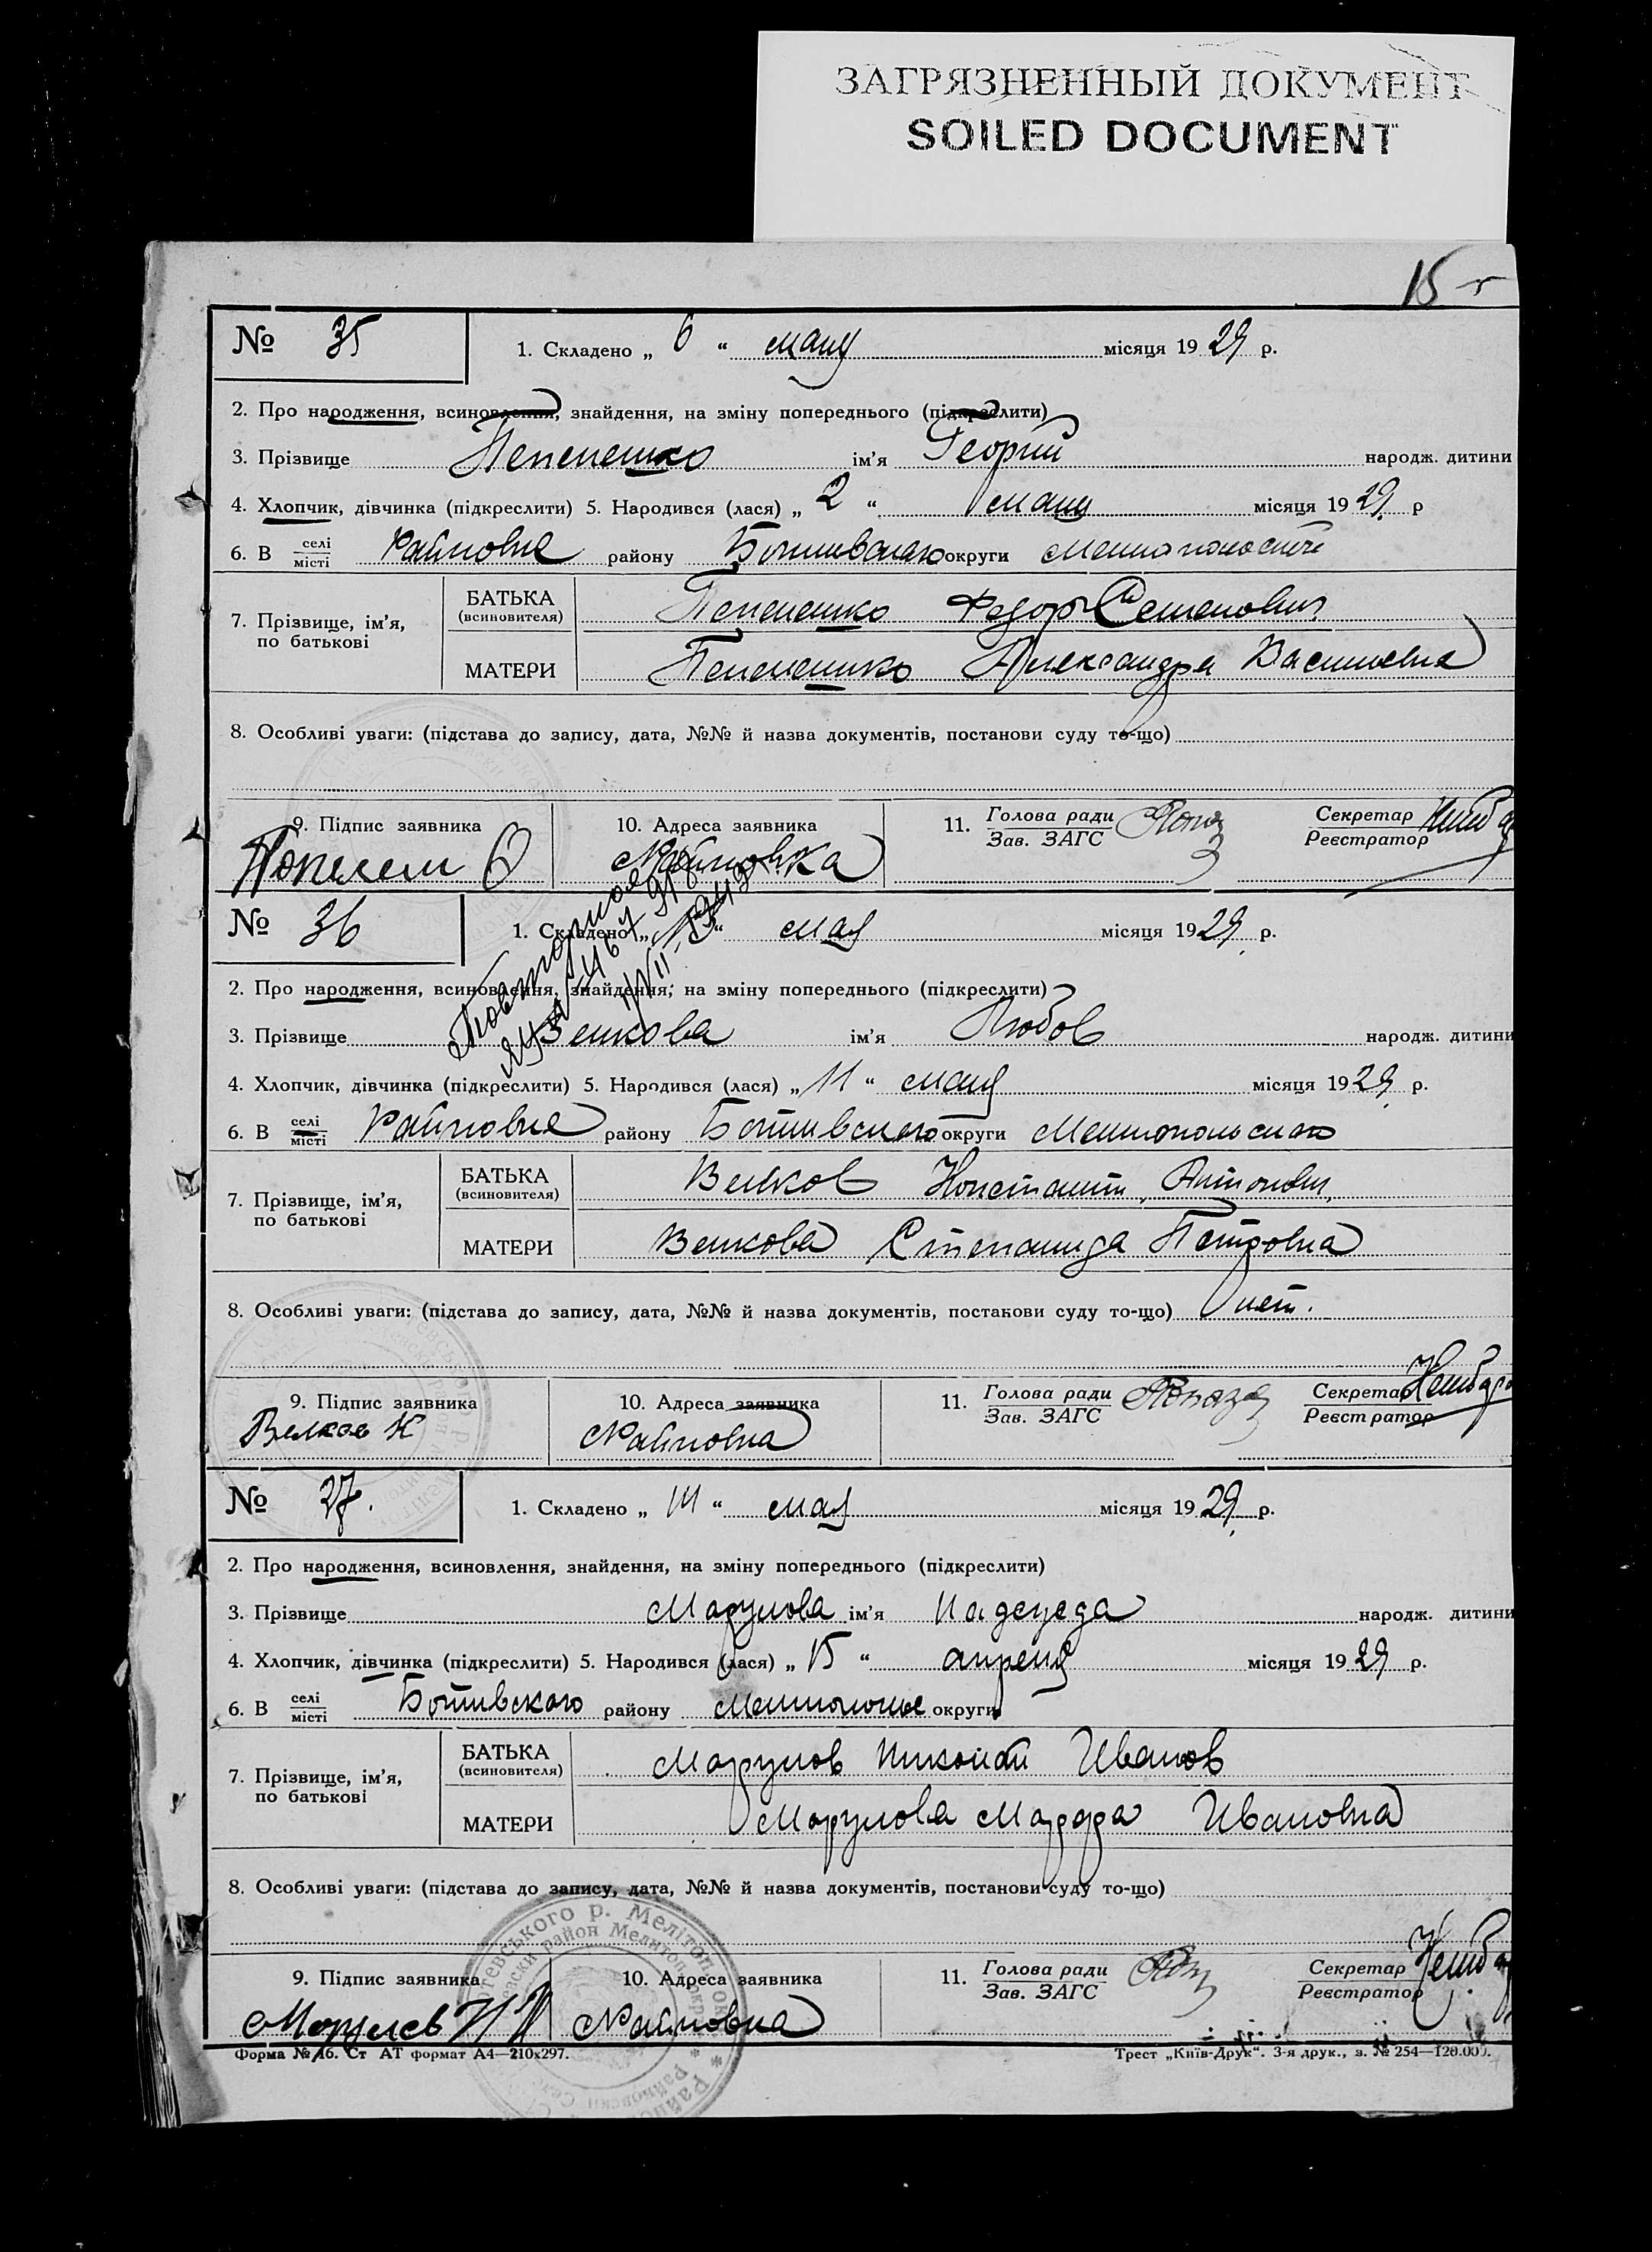 ЗАГРЯЗНЕННЫЙ ДОКУМЕНТ
SOILED DOCUMENT
15
№ 35 1. Складено „ 6 “ мая місяця 1929 р.
2. Про народження, всиновлення, знайдення, на зміну попереднього (підкреслити)
3. Прізвище ім'я Георгий народж. дитини
4. Хлопчик, дівчинка (підкреслити) 5. Народився (лася) „ 2 “ мая місяця 1929 р
6. В селі/місті Райновке району округи
7. Прізвище, ім'я, по батькові
БАТЬКА (всиновителя) Федор Семенович
МАТЕРИ Александра Васильевна
8. Особливі уваги: (підстава до запису, дата, №№ й назва документів, постанови суду то-що)
9. Підпис заявника 10. Адреса заявника 11. Голова ради Секретар
Зав. ЗАГС Реєстратор
Райновка
№ 36 1. Складено „ “ мая місяця 1929 р.
Повторное
2. Про народження, всиновлення, знайдення, на зміну попереднього (підкреслити)
3. Прізвище Велкова ім'я Любов народж. дитини
4. Хлопчик, дівчинка (підкреслити) 5. Народився (лася) „ 11 “ мая місяця 1929 р.
6. В селі/місті Райновке району Ботивского округи Мелитопольского
7. Прізвище, ім'я, по батькові
БАТЬКА (всиновителя) Велков Константин Антонович
МАТЕРИ Велкова Степанида Петровна
8. Особливі уваги: (підстава до запису, дата, №№ й назва документів, постанови суду то-що) нет.
9. Підпис заявника 10. Адреса заявника 11. Голова ради Секретар
Зав. ЗАГС Реєстратор
Велков К Райновка
№ 37. 1. Складено „ “ мая місяця 1929 р.
2. Про народження, всиновлення, знайдення, на зміну попереднього (підкреслити)
3. Прізвище Марулова ім'я Надежда народж. дитини
4. Хлопчик, дівчинка (підкреслити) 5. Народився (лася) „ 15 “ апреля місяця 1929 р.
6. В селі/місті Ботивского району округи
7. Прізвище, ім'я, по батькові
БАТЬКА (всиновителя) Марулов Николай Иванов
МАТЕРИ Марулова Марфа Ивановна
8. Особливі уваги: (підстава до запису, дата, №№ й назва документів, постанови суду то-що)
9. Підпис заявника 10. Адреса заявника 11. Голова ради Секретар
Зав. ЗАГС Реєстратор
Райновка
Форма № 16. Ст АТ формат А4—210х297. Трест „Київ-Друк“. 3-я друк., з. № 254—120.000.